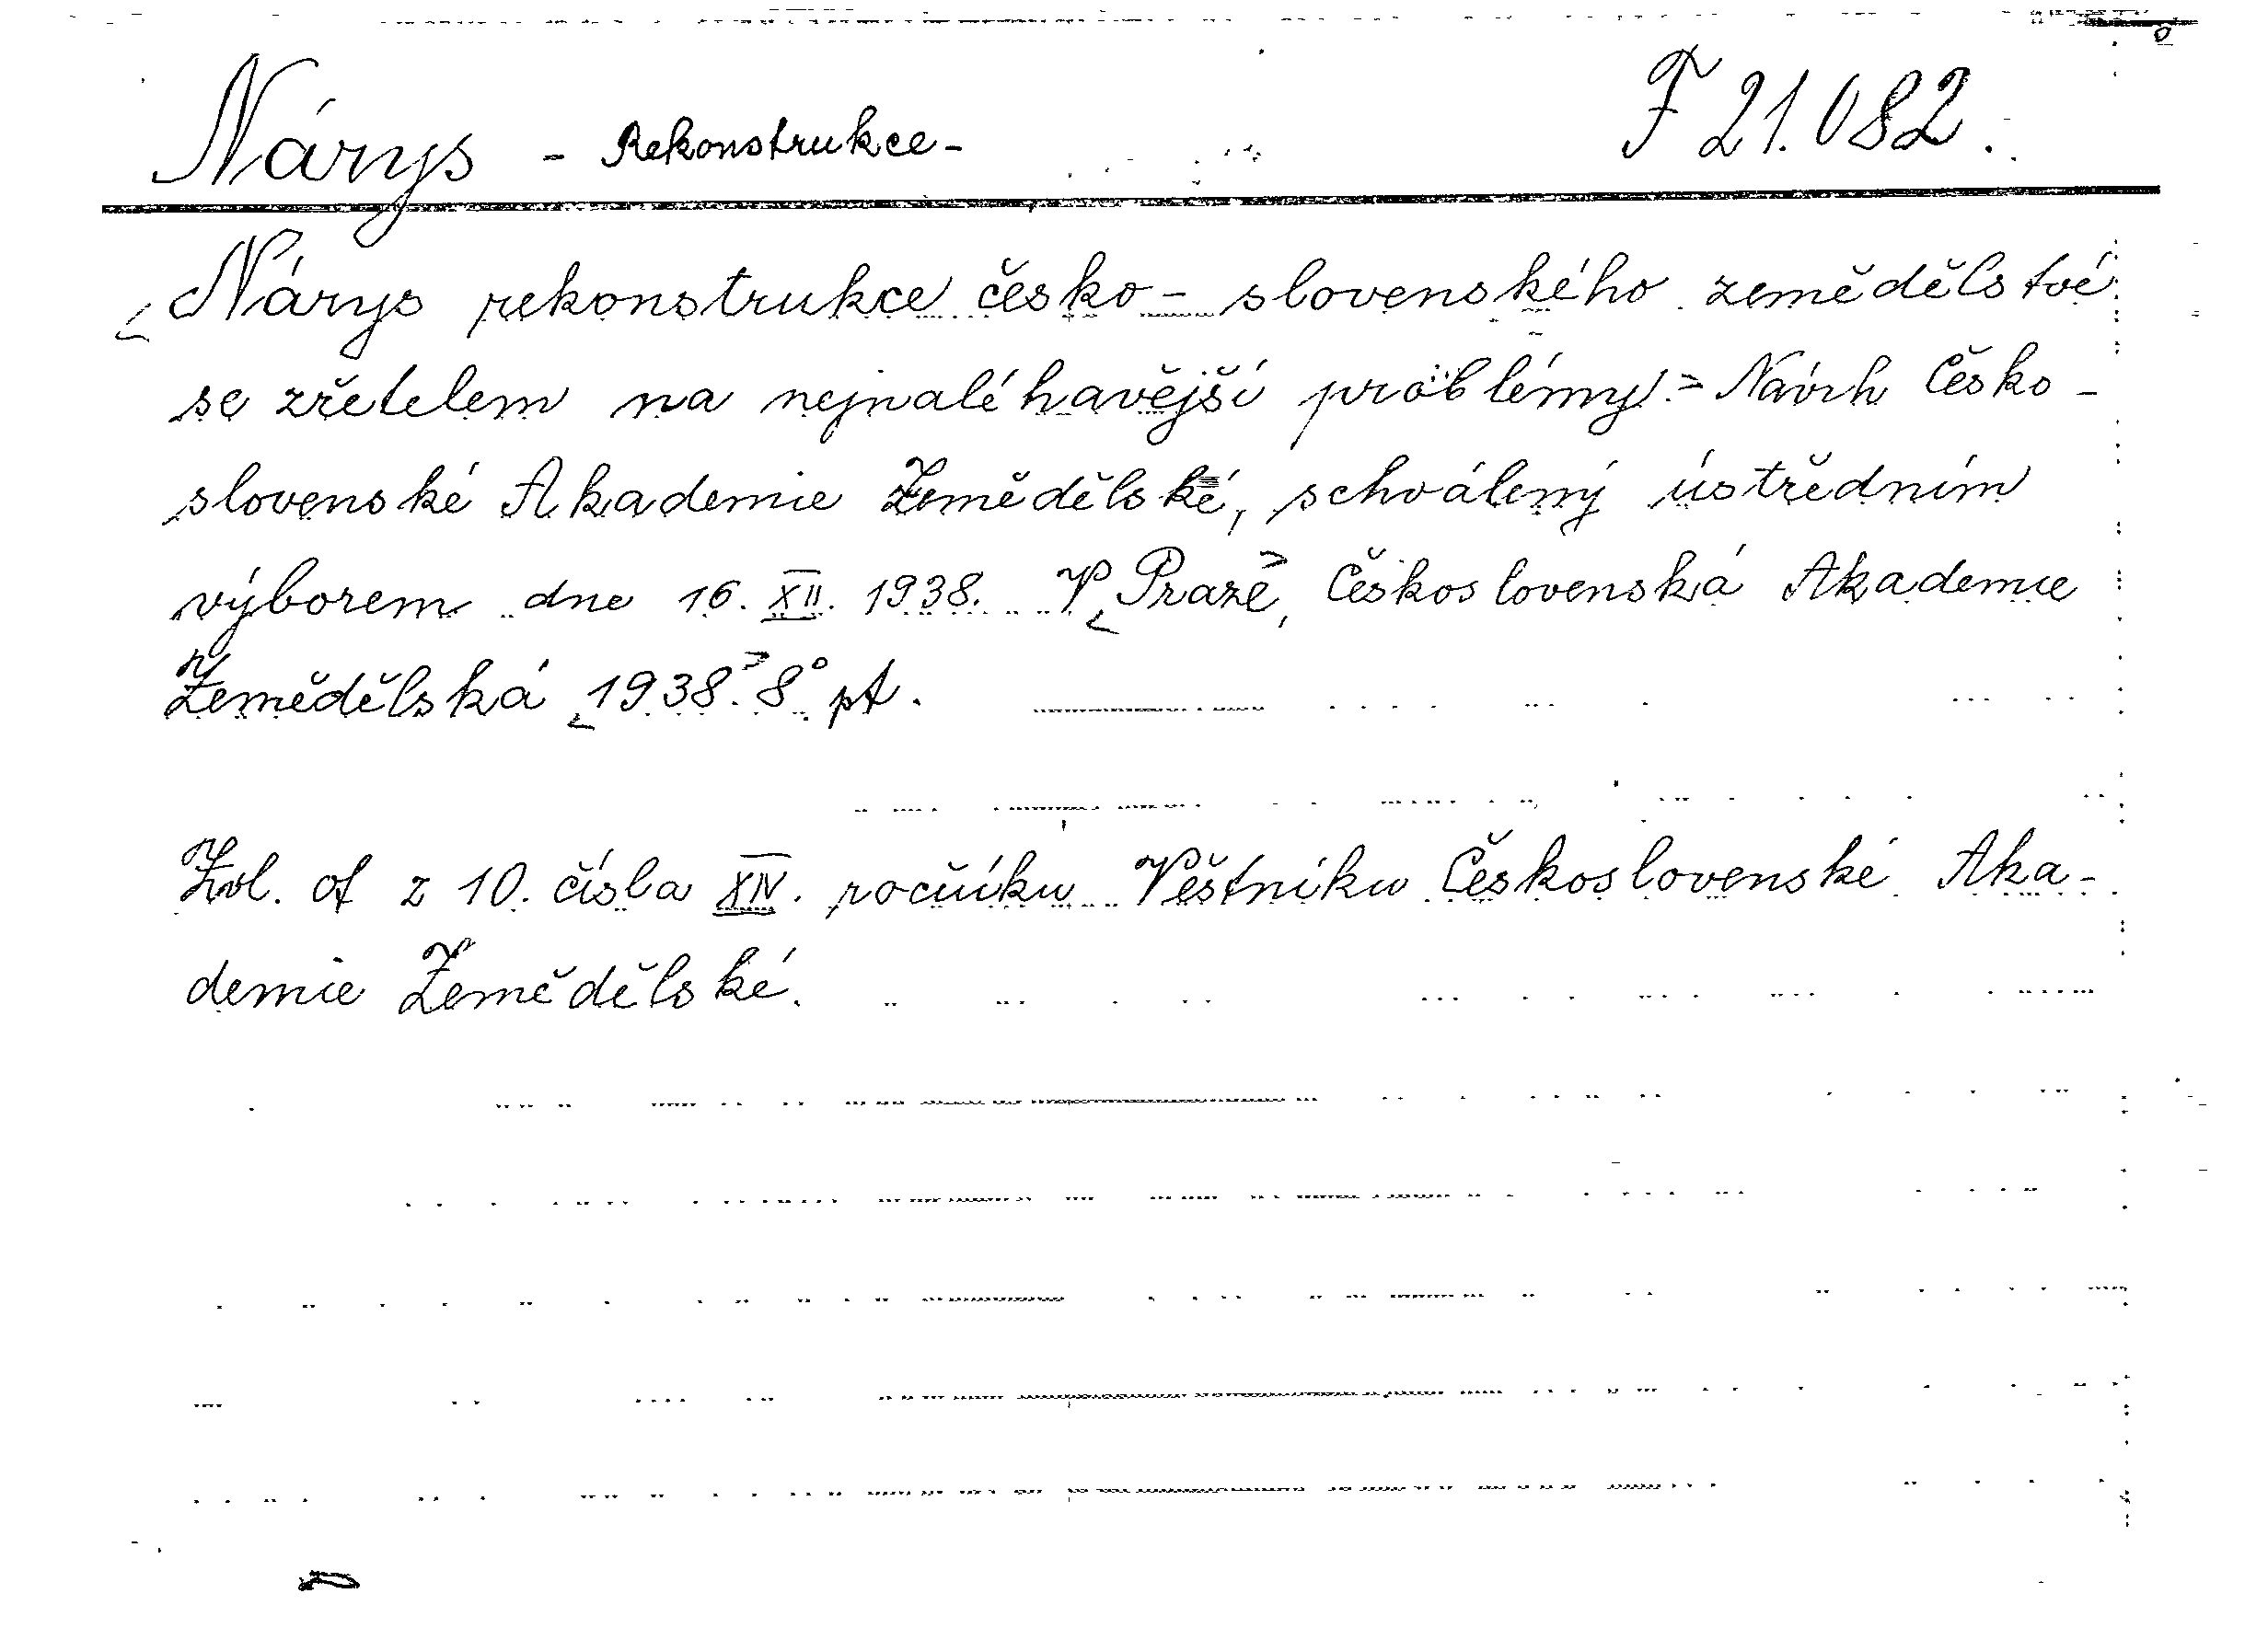 Nárys - Rekonstrukce - F 21.082.
Nárys rekonstrukce česko - slovenského zemědělství
se zřetelem na nejnaléhavější problémy. = Návrh Česko -
slovenské Akademie Zemědělské, schválený ústředním
výborem dne 16. XII. 1938. V Praze, Československá Akademie
Zemědělská 1938. 8° pt.
Zvl. ot z 10. čísla XIV. ročníku Věstníku Československé Aka -
demie Zemědělské.